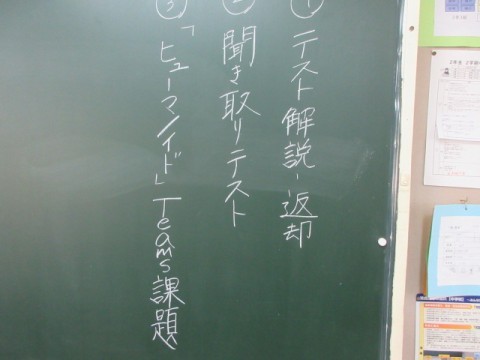 ① テスト解説・返却
② 聞き取りテスト
③「ヒューマノイド」Teams課題